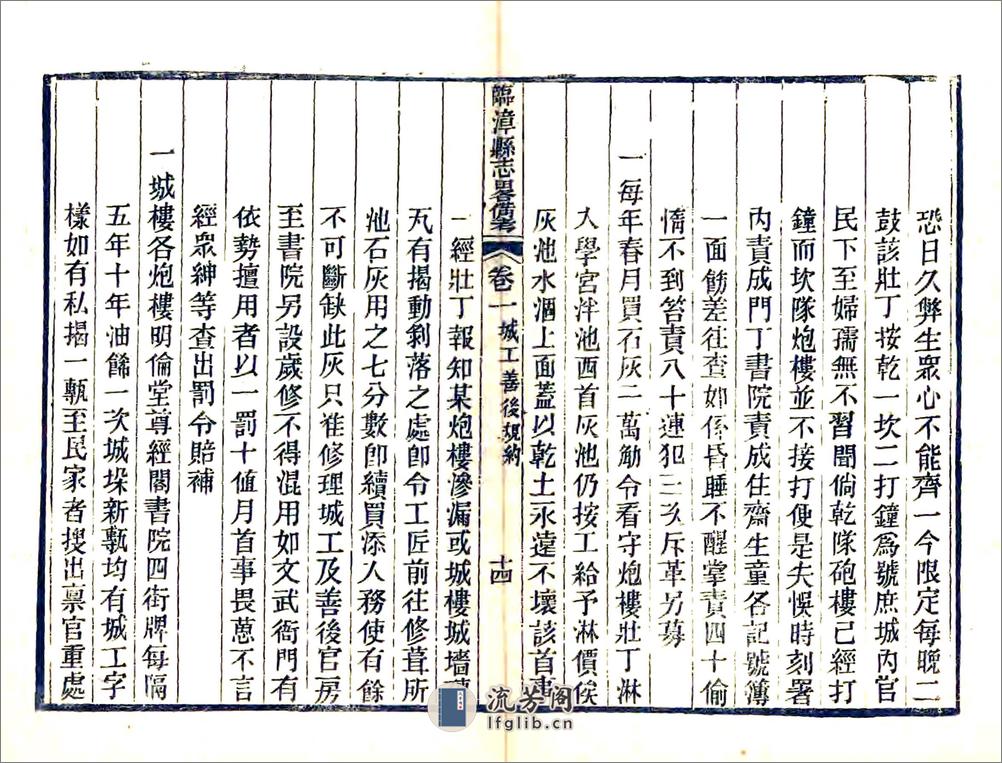 恐日久弊生衆心不能齊一今限定每晚二
鼓該壯丁按乾一坎二打鐘爲號庶城內官
民下至婦孺無不習聞倘乾隊砲樓已經打
鐘而坎隊炮樓並不接打便是失悞時刻署
內責成門丁書院責成住齋生童各記號簿
一面飭差往查如係昏睡不醒掌責四十偷
惰不到笞責八十連犯三次斥革另募
一每年春月買石灰二萬觔令看守炮樓壯丁淋
入學宮泮池西首灰池仍按工給予淋價俟
灰池水涸上面蓋以乾土永遠不壞該首事
臨漳縣志畧備考 卷一 城工善後規約 十四
一經壯丁報知某炮樓滲漏或城樓城墻
凡有揭動剝落之處卽令工匠前往修葺所
池石灰用之七分數卽續買添人務使有餘
不可斷缺此灰只准修理城工及善後官房
至書院另設歲修不得混用如文武衙門有
依勢擅用者以一罰十値月首事畏葸不言
經衆紳等查出罰令賠補
一城樓各炮樓明倫堂尊經閣書院四街牌每隔
五年十年油餙一次城垜新甎均有城工字
樣如有私揭一甎至民家者搜出禀官重處
流芳阁
lfglib.cn